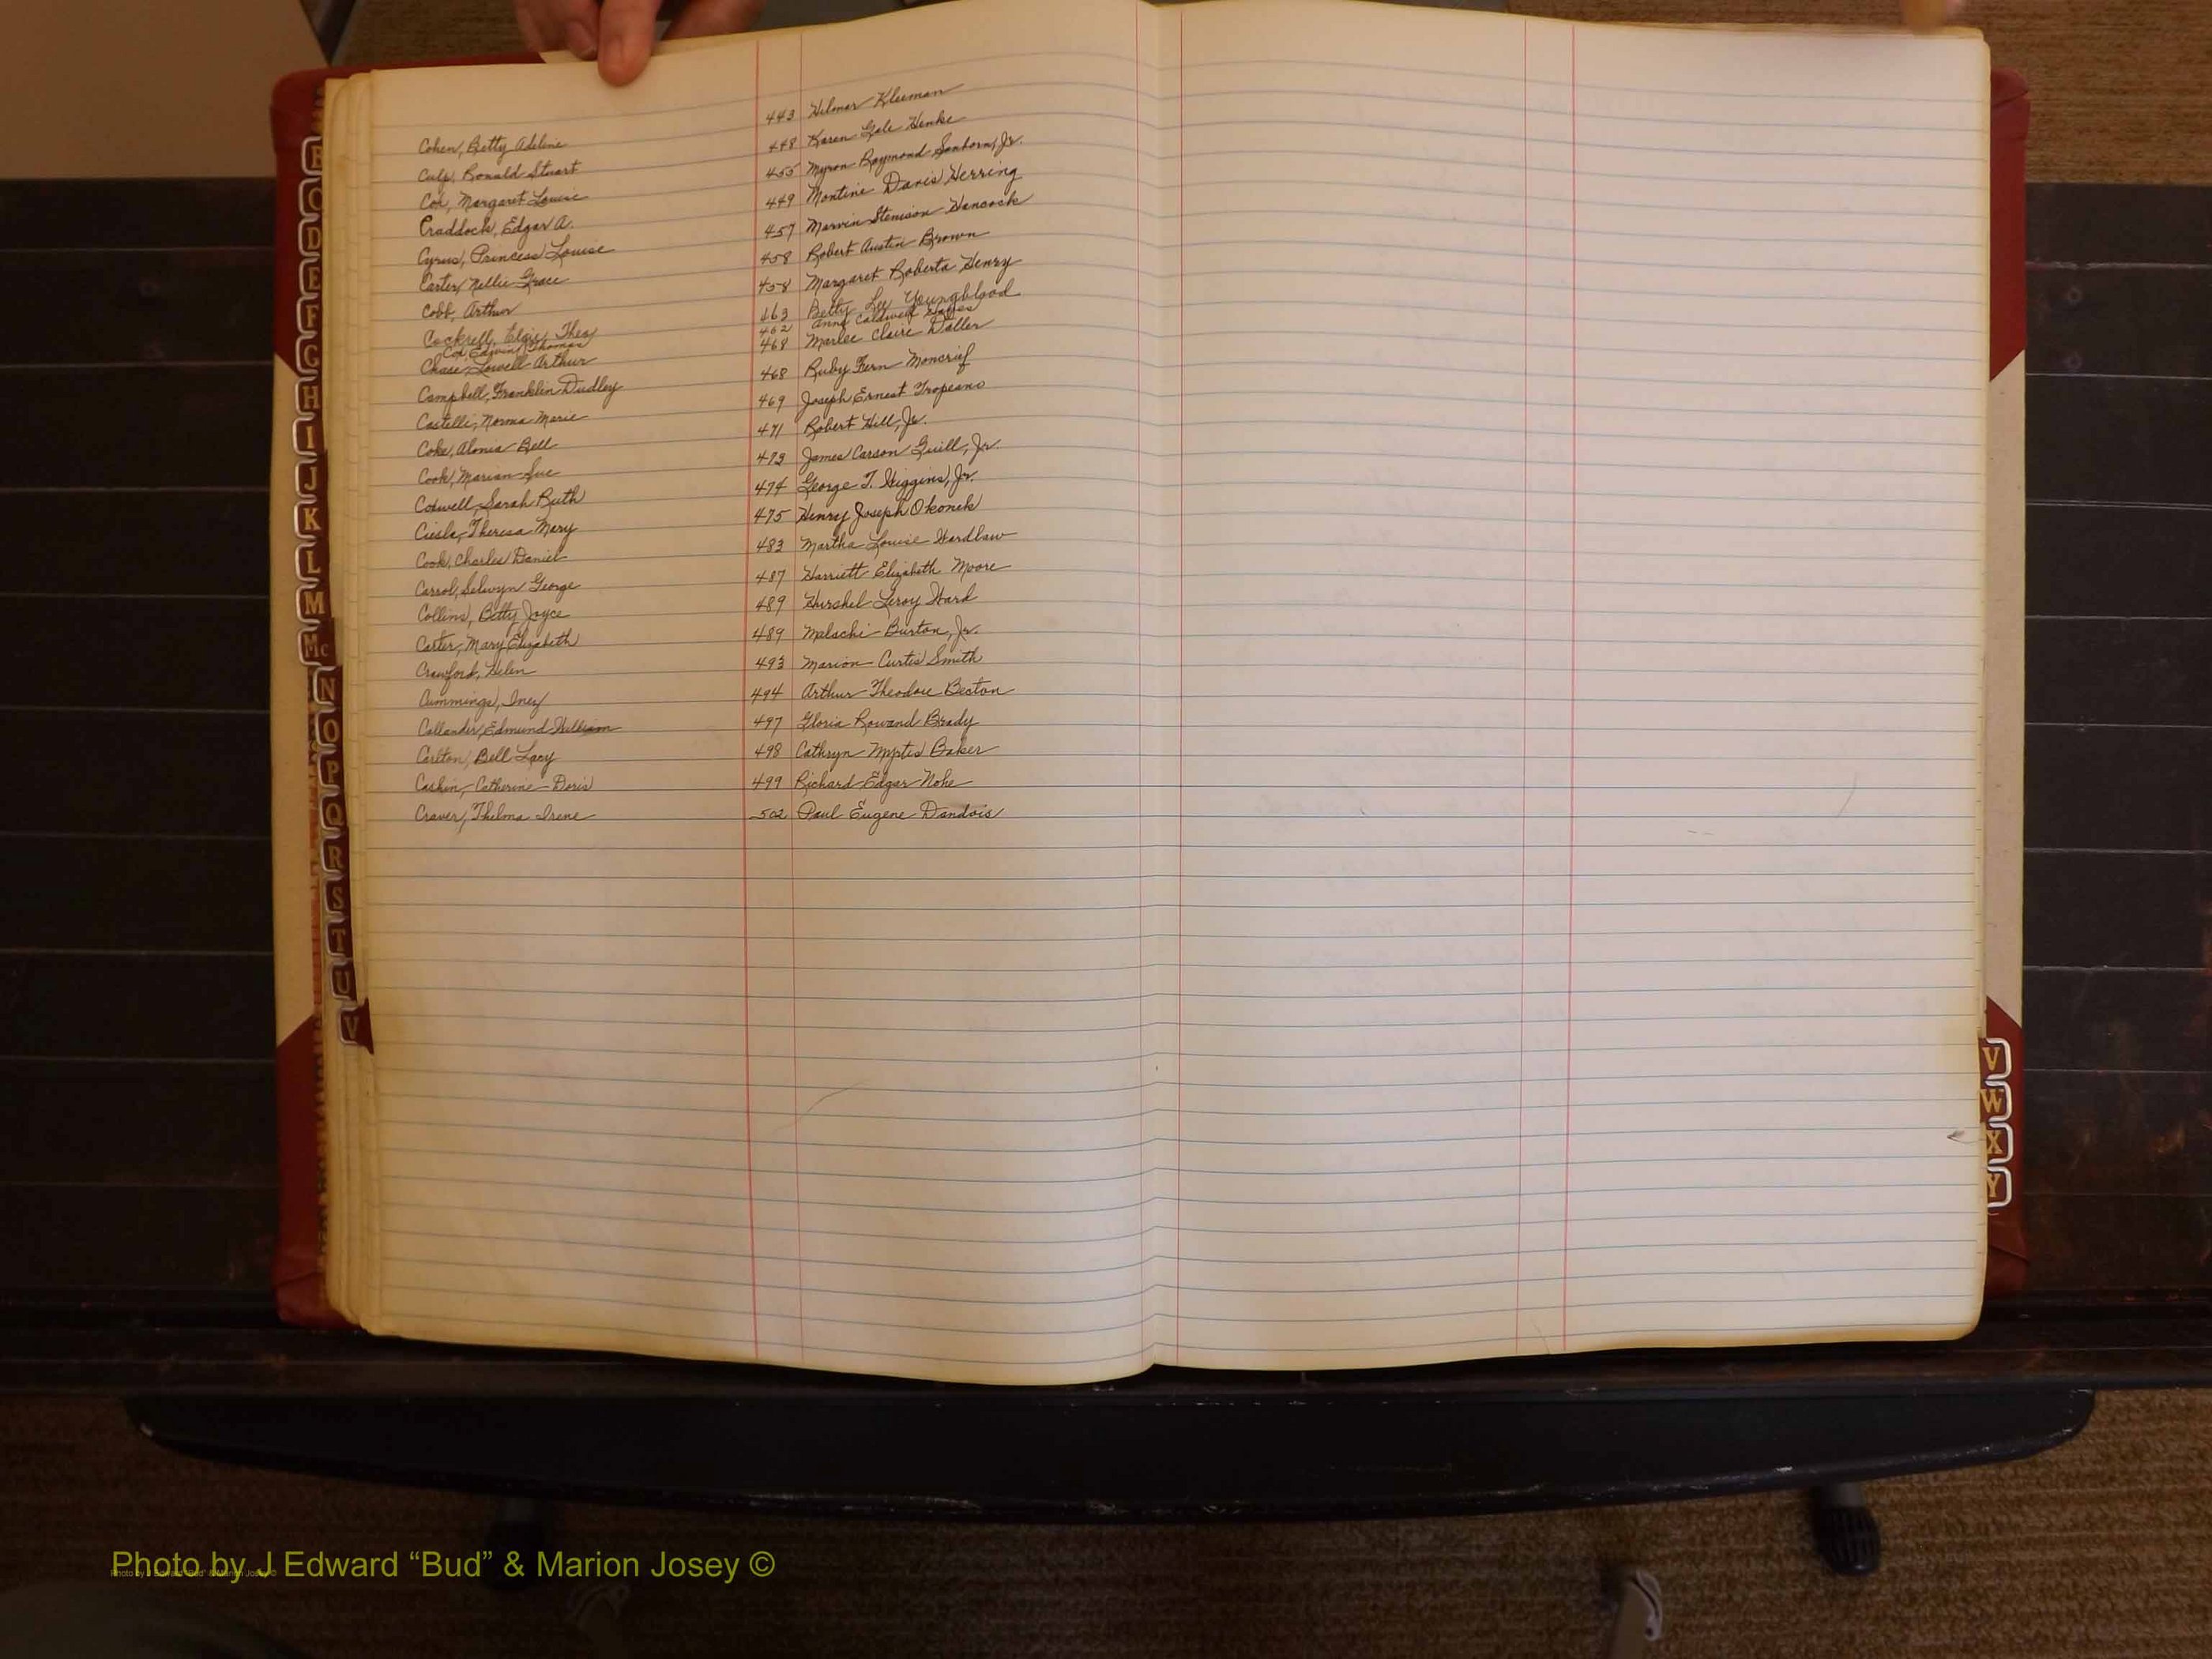 Cohen, Betty Adeline 443 Hilmar Kleeman
Culp, Ronald Stuart 448 Karen Gale Henke
Cox, Margaret Louise 455 Myron Raymond Sanborn, Jr.
Craddock, Edgar A. 449 Montine Davis Herring
Cyrus, Princess Louise 457 Marvin Stenison Hancock
Carter, Nellie Grace 458 Robert Austin Brown
Cobb, Arthur 458 Margaret Roberta Henry
Cockrell, Elgie Theo 463 Betty Lee Youngblood
Cox, Edwin Thomas 462 Anne Caldwell Hayes
Chase, Lowell Arthur 468 Marlee Claire Daller
Campbell, Franklin Dudley 468 Ruby Fern Moncrief
Castelli, Norma Marie 469 Joseph Ernest Tropeano
Coke, Alonia Bell 471 Robert Hill, Jr.
Cook, Marian Sue 473 James Carson Guill, Jr.
Coxwell, Sarah Ruth 474 George T. Higgins, Jr.
Ciesla, Theresa Mary 475 Henry Joseph Okonek
Cook, Charles Daniel 483 Martha Louise Wardlaw
Carrol, Selwyn George 487 Harriett Elizabeth Moore
Collins, Betty Joyce 489 Hershel Leroy Ward
Carter, Mary Elizabeth 489 Malachi Burton, Jr.
Crawford, Helen 493 Marion Curtis Smith
Cummings, Inez 494 Arthur Theodore Becton
Callander, Edmund William 497 Gloria Rowand Brady
Carlton, Bell Lacy 498 Cathryn Myrtis Baker
Caskin, Catherine Doris 499 Richard Edgar Nohe
Craver, Thelma Irene 502 Paul Eugene Dandois
B
C
D
E
F
G
H
I
J
K
L
M
Mc
N
O
P
Q
R
S
T
U
V
V
W
X
Y
Photo by J Edward “Bud” & Marion Josey ©
Photo by J Edward “Bud” & Marion Josey ©